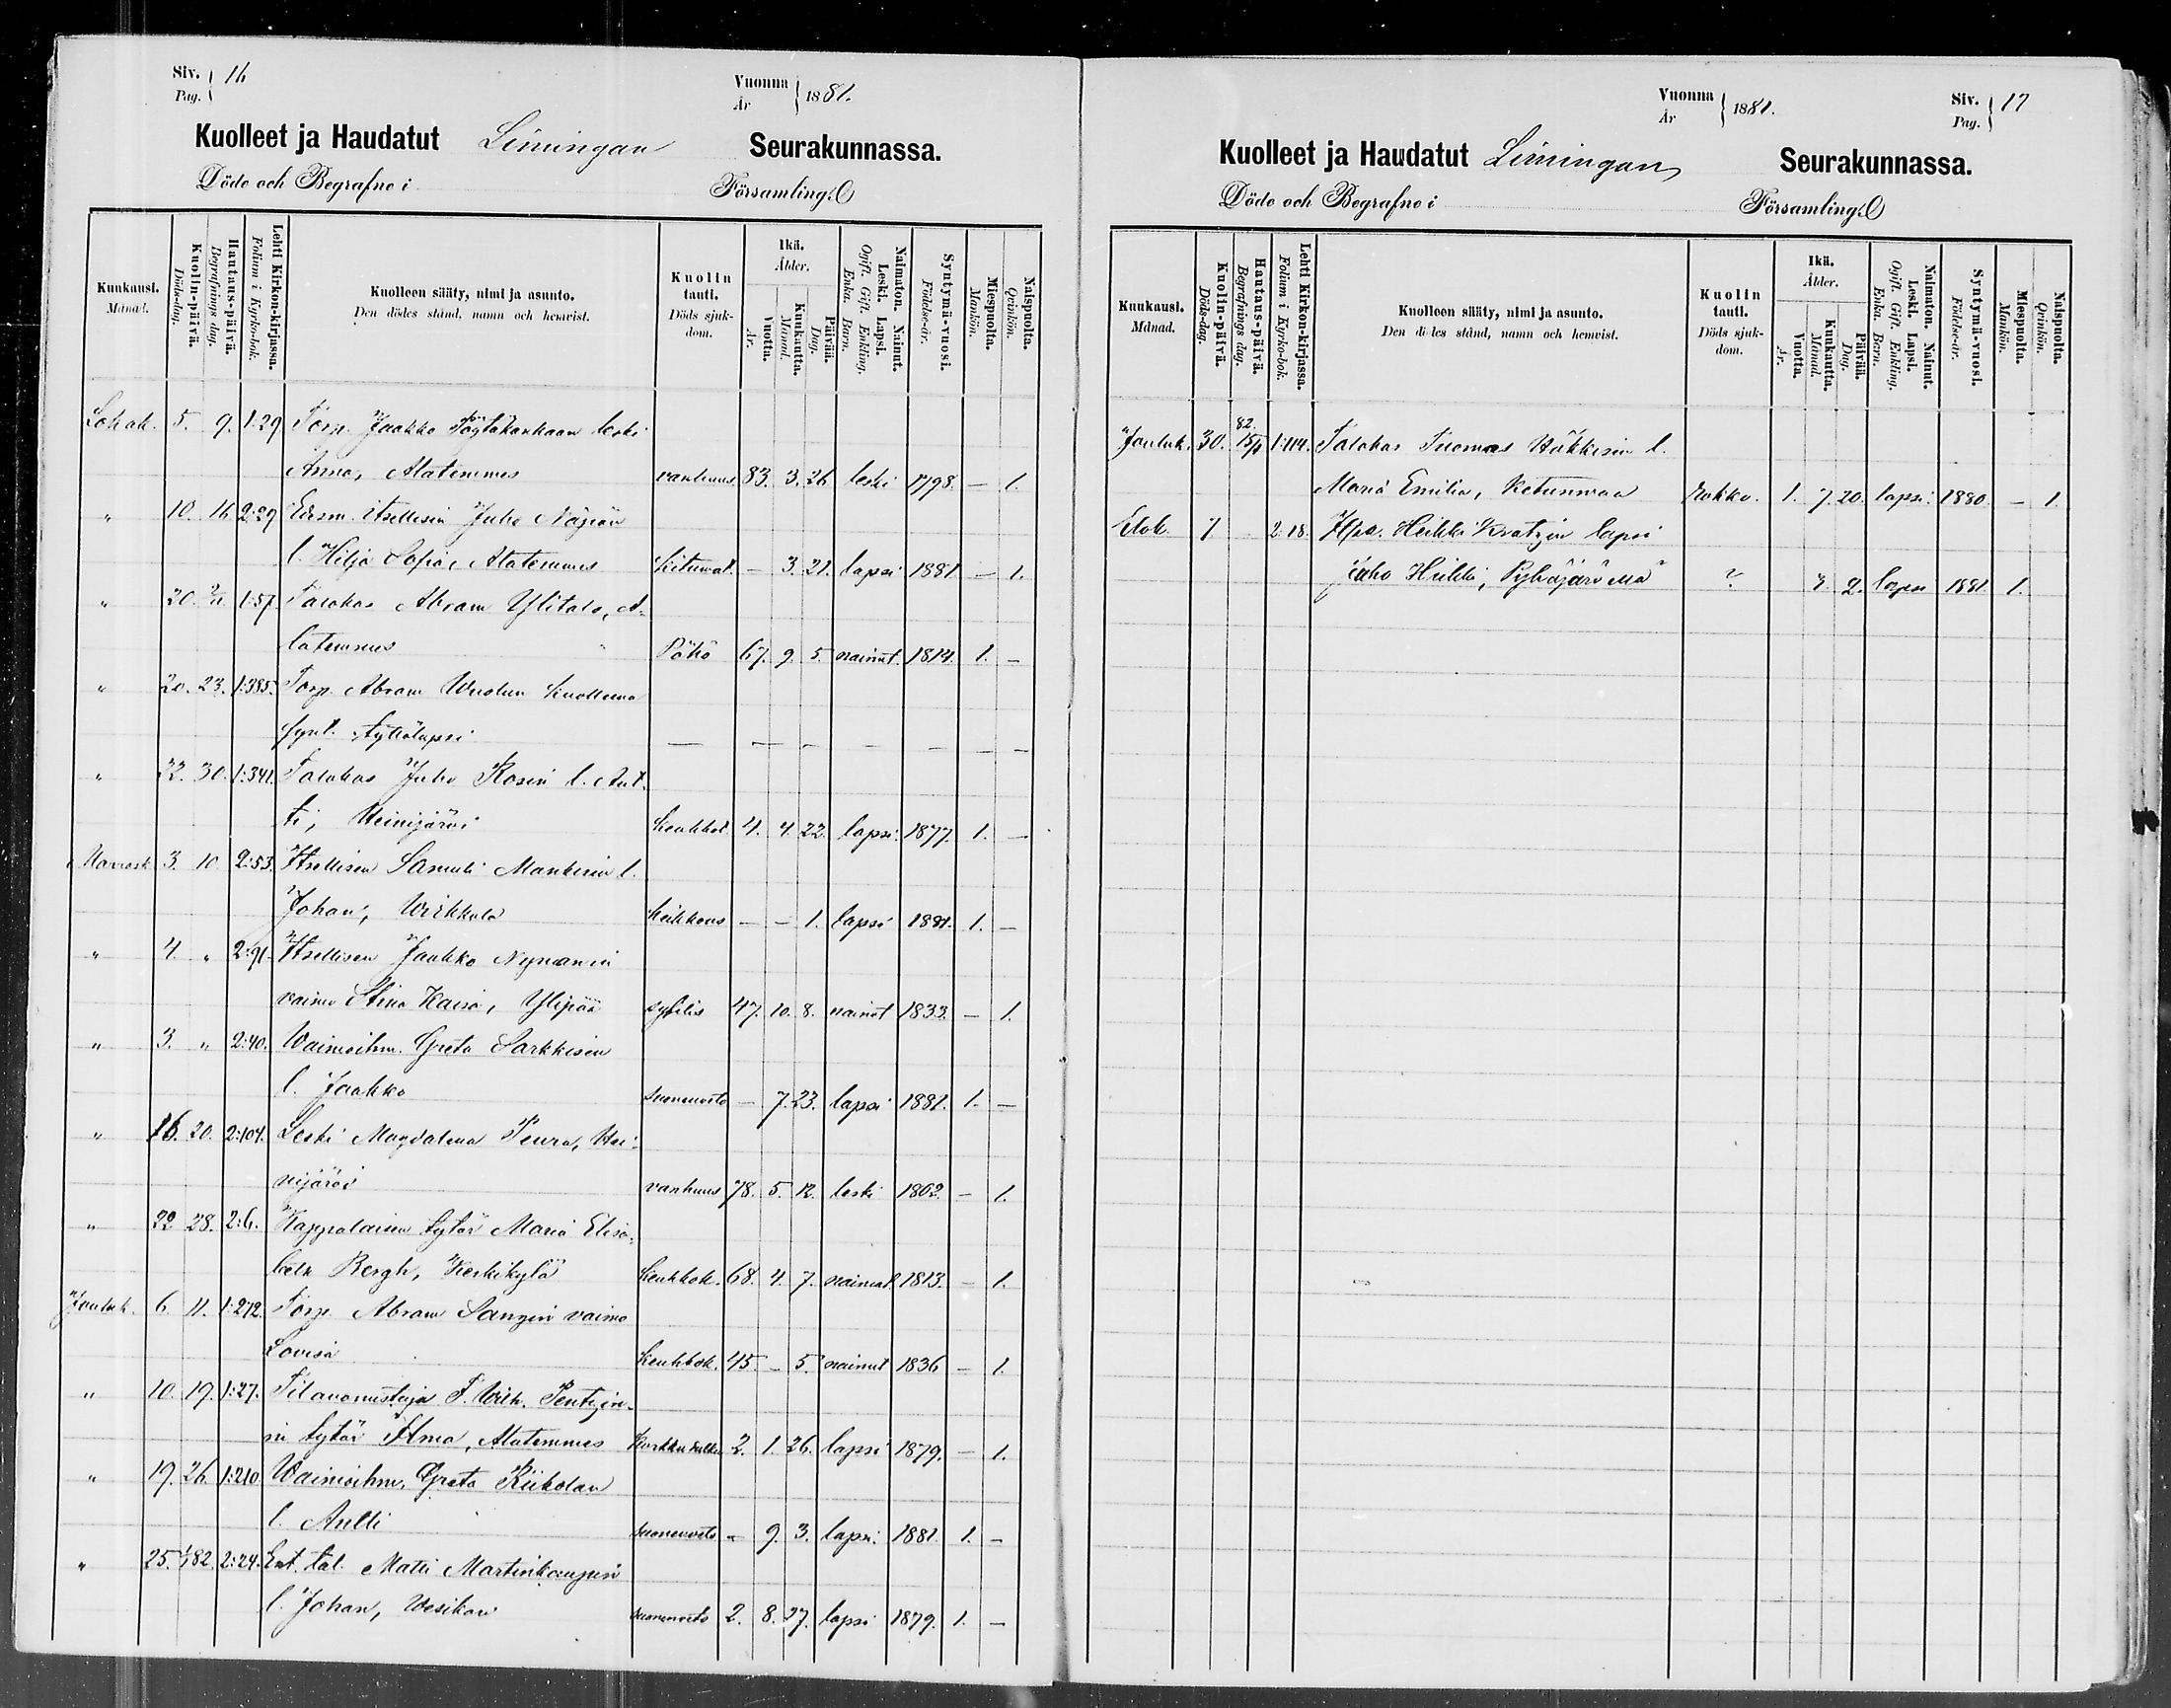 Siv. Pag. 16
Vuonna År 1881.
Kuolleet ja Haudatut Limingan Seurakunnassa.
Döde och Begrafne i Församling.
Kuukausi. Månad.
Kuolin-päivä. Döds-dag.
Hautaus-päivä. Begrafnings dag.
Lehti Kirkon-kirjassa. Folium i Kyrko-bok.
Kuolleen sääty, nimi ja asunto. Den dödes stånd, namn och hemvist.
Kuolin tauti. Döds sjukdom.
Ikä. Ålder.
Vuotta. År.
Kuukautta. Månad.
Päivää. Dag.
Naimaton. Nainut. Leski. Lapsi. Ogift. Gift. Enkling. Enka. Barn.
Syntymä-vuosi. Födelse-år.
Miespuolta. Mankön.
Naispuolta. Qvinkön.
Lokak. 5. 9. 1:29 Torp. Jaakko Pöytäkankaan leski
Anna, Alatemmes vanhuus 83. 3. 26 leski 1798. — 1.
" 10. 16 2:29 Edesm. Itsellisen Juho Näpiän
l. Hilja Sofia, Alatemmes kitumat. — 3. 21. lapsi 1881 — 1.
" 20. 1:57. Talokas Abram Ylitalo, A-
latemmes Pöhö 67. 9. 5. nainut. 1814. 1. —
" 20. 23. 1:385. Torp. Abram Wuolun kuolleena
synt. tyttölapsi — — — — — — —
" 22. 30. 1:341. Talokas Juho Kosin l. Ant-
ti, Heinijärvi keuhkot. 4. 4. 22. lapsi. 1877. 1. —
Marrask. 3. 10. 2:53. Itsellisen Samuli Mankisen l.
Johan, Wirkkula heikkous — — 1. lapsi 1881. 1. —
" 4. " 2:91. Itsellisen Jaakko Nymanin
vaimo Stina Kaisa, Ylipää syfilis 47. 10. 8. nainut 1833. — 1.
" 3. " 2:40. Waimoihm. Greta Sarkkisen
l. Jaakko suonenveto — 7. 23. lapsi 1881. 1. —
" 16. 20. 2:104. Leski Magdalena Peura, Hei-
nijärvi vanhuus 78. 5. 12. leski 1802. — 1.
" 22 28. 2:6. Kappalaisen tytär Maria Elisa-
beth Bergh, Keskikylä keuhkok. 68. 4. 7. naimat. 1813. — 1.
Jouluk. 6. 11. 1:272. Torp. Abram Sangin vaimo
Lovisa keuhkok. 45. — 5. nainut 1836 — 1.
" 10. 19. 1:27. Tilanomistaja F. Wilh. Pentzin-
in tytär Ilma, Alatemmes 2. 1. 26. lapsi 1879. — 1.
" 19. 26. 1:210. Waimoihm. Greta Kiikolan
l. Antti suonenveto — 9. 3. lapsi. 1881. 1. —
" 25. 1/82. 2:24. Ent. tal. Matti Martinkaupin
l. Johan, Wesikari suonenveto 2. 8. 27. lapsi 1879. 1. —
Vuonna År 1881.
Siv. Pag. 17
Kuolleet ja Haudatut Limingan Seurakunnassa.
Döde och Begrafne i Församling.
Kuukausi. Månad.
Kuolin-päivä. Döds-dag.
Hautaus-päivä. Begrafnings dag.
Lehti Kirkon-kirjassa. Folium i Kyrko-bok.
Kuolleen sääty, nimi ja asunto. Den dödes stånd, namn och hemvist.
Kuolin tauti. Döds sjukdom.
Ikä. Ålder.
Vuotta. År.
Kuukautta. Månad.
Päivää. Dag.
Naimaton. Nainut. Leski. Lapsi. Ogift. Gift. Enkling. Enka. Barn.
Syntymä-vuosi. Födelse-år.
Miespuolta. Mankön.
Naispuolta. Qvinkön.
82.
Jouluk. 30. 15/1 1:114. Talokas Tuomas Häkkisen l.
Maria Emilia, Ketunmaa rokko. 1. 7. 20. lapsi. 1880. — 1.
Elok. 7 2:18. Heikki Kratzin lapsi
Juho Heikki, ? 2. lapsi 1881 1.